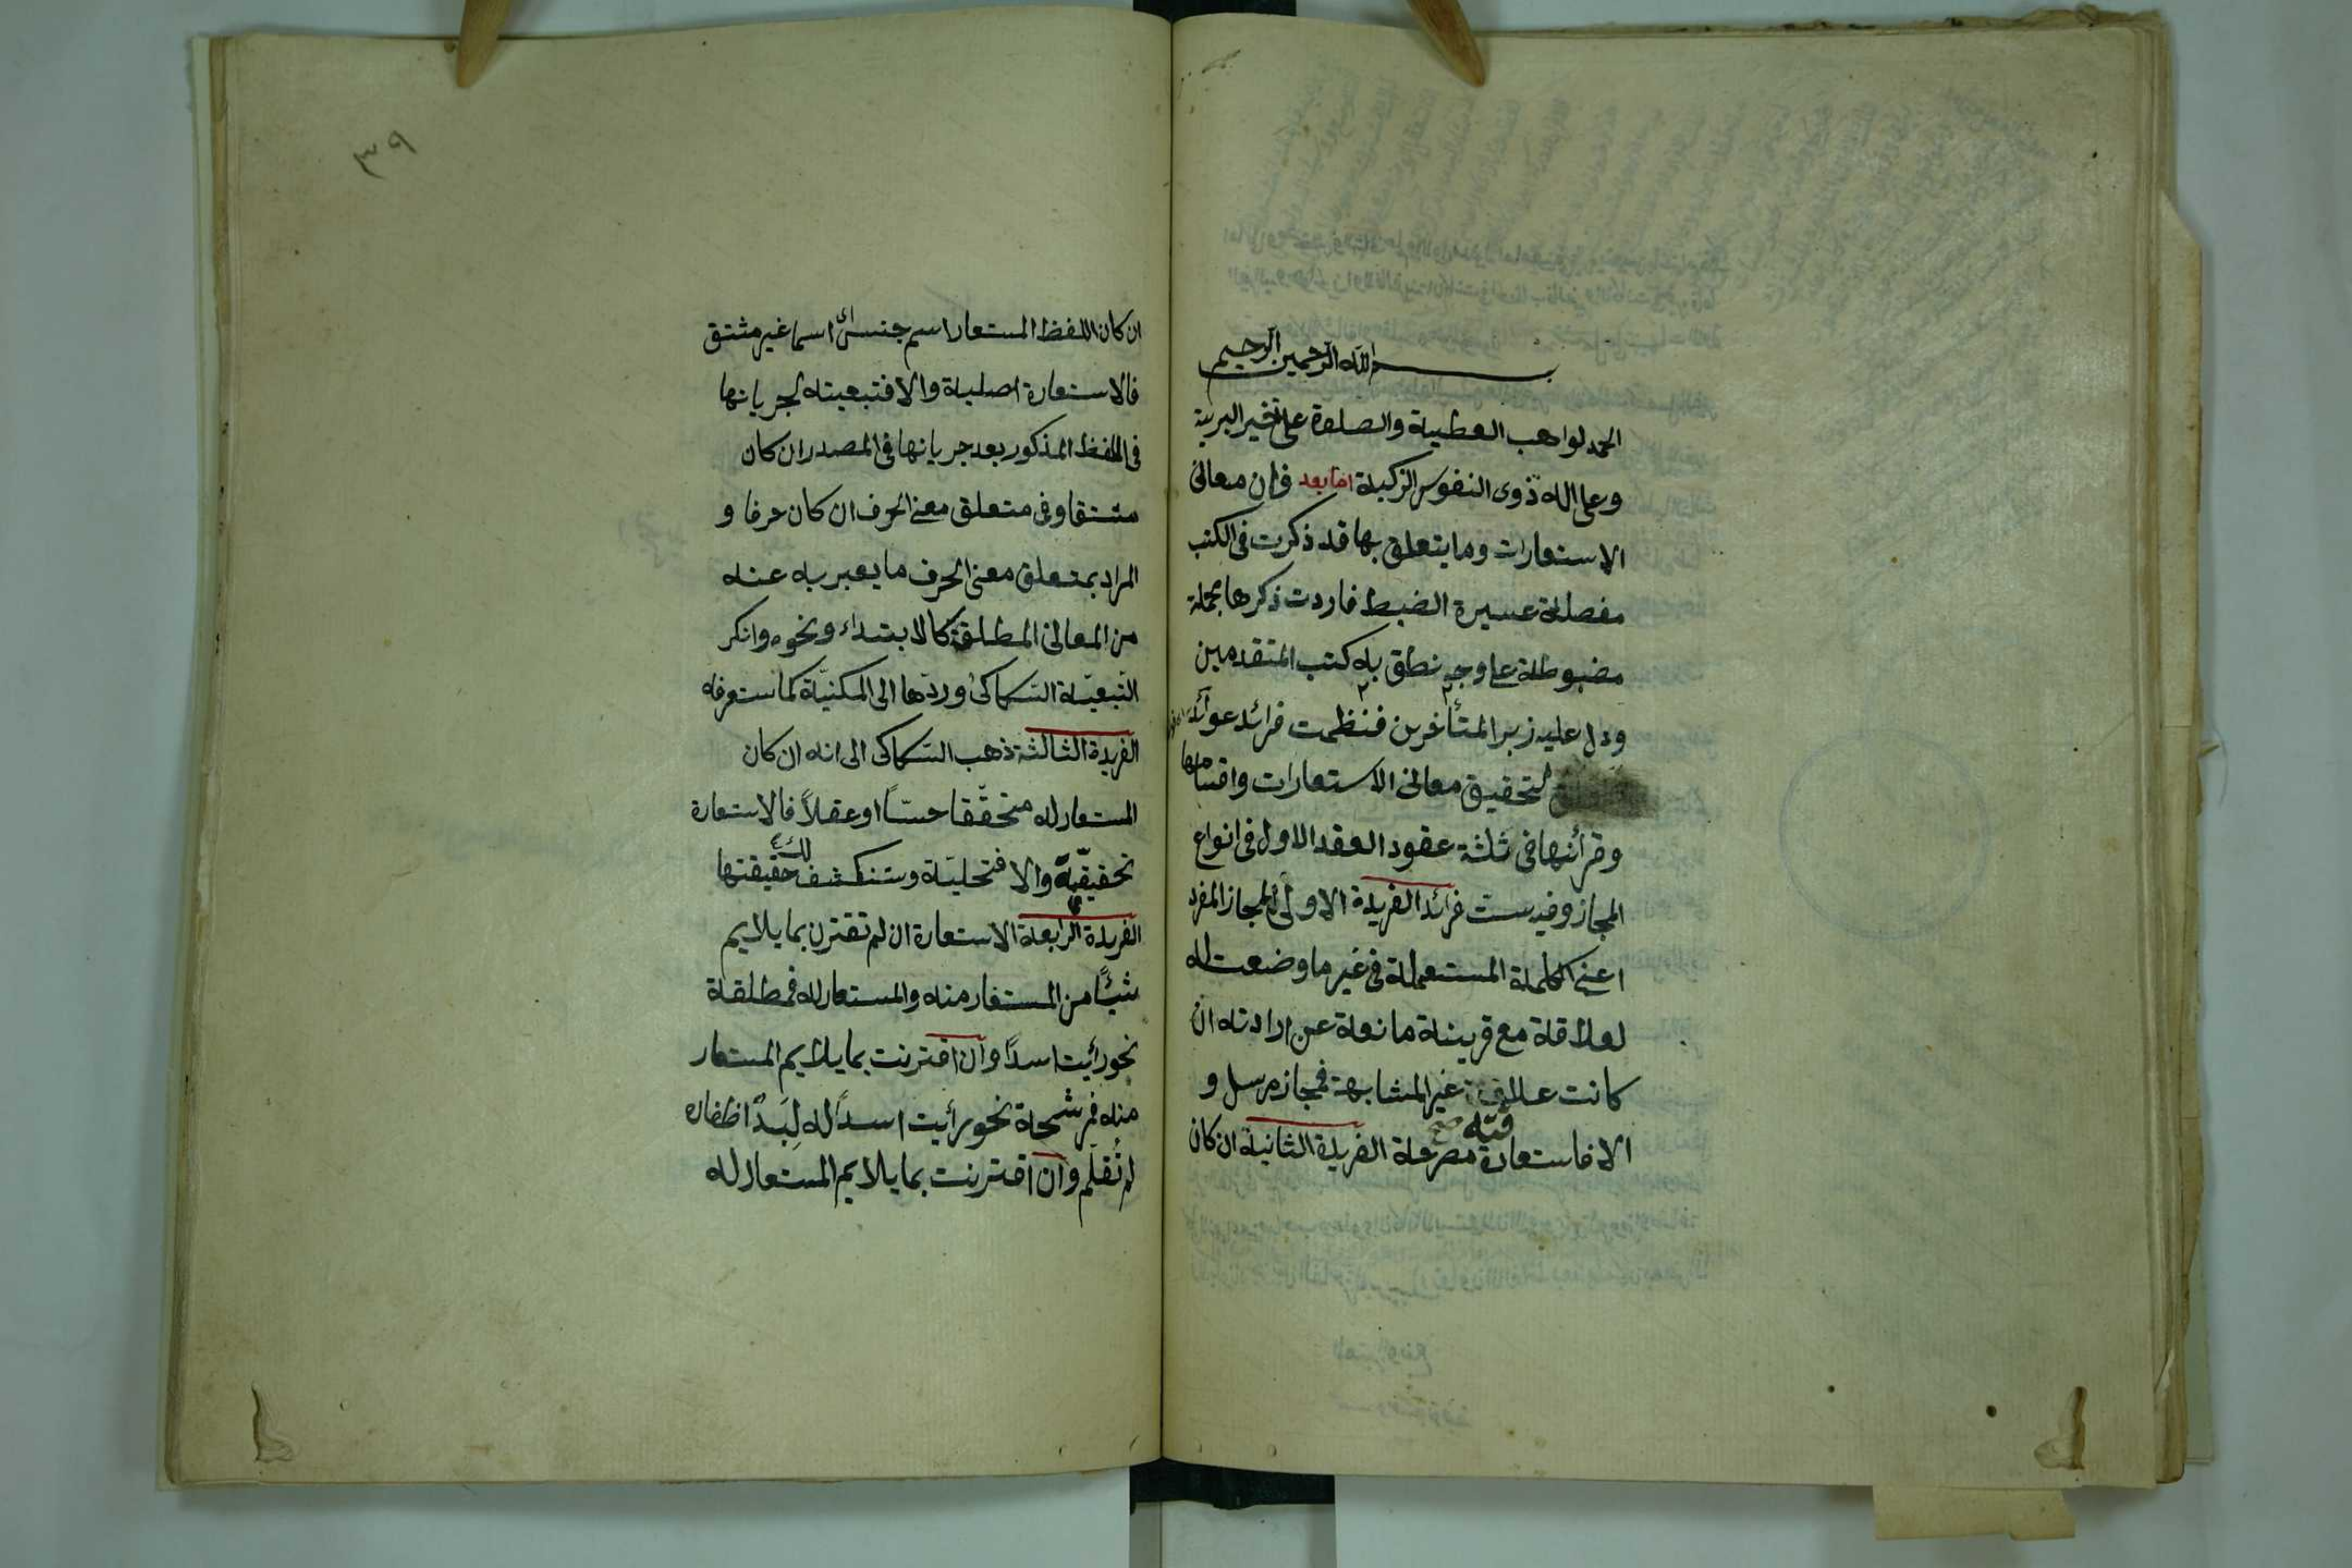 بسم الله الرحمن الرحيم
الحمد لواهب العطية والصلوة على خير البرية
وعلى اله ذوى النفوس الزكية اما بعد فان معانى
الاستعارات وما يتعلق بها قد ذكرت فى الكتب
مفصلة عسيرة الضبط فاردت ذكرها مجملة
مضبوطة على وجه نطق به كتب المتقدمين
ودل عليه زبر المتأخرين فنظمت فرائد عوائد
لتحقيق معانى الاستعارات واقسامها
وقرأئنها فى ثلثة عقود العقد الاول فى انواع
المجاز وفيه ست فرائد الفريدة الاولى المجاز المفرد
اعنى الكلمة المستعملة فى غير ما وضعت له
لعلاقة مع قرينة مانعة عن ارادته ان
كانت علاقته غير المشابهة فمجاز مرسل و
الا فاستعارة مصرحة الفريدة الثانية ان كان
٣٩
ان كان اللفظ المستعار اسم جنس اى اسما غير مشتق
فالاستعارة اصلية والا فتبعيته لجريانها
فى اللفظ المذكور بعد جريانها فى المصدر ان كان
مشتقا وفى متعلق معنى الحرف ان كان حرفا و
المراد بمتعلق معنى الحرف ما يعبر به عنه
من المعانى المطلقة كالابتداء ونحوه وانكر
التبعيّة السكاكى وردّها الى المكنيّة كما ستعرفه
الفريدة الثالثة ذهب السكاكى الى انه ان كان
المستعار له متحقّقا حسّاً او عقلاً فالاستعارة
تحقيقيّة والا فتخليّة وستنكشف لك حقيقتها
الفريدة الرابعة الاستعارة ان لم تقترن بما يلايم
شيئاً من المستعار منه والمستعار له فمطلقة
نحو رأيت اسداً وان اقترنت بما يلايم المستعار
منه فمرشحة نحو رأيت اسداً له لِبَدٌ اظفاره
لم تُقلم وان اقترنت بما يلايم المستعار له